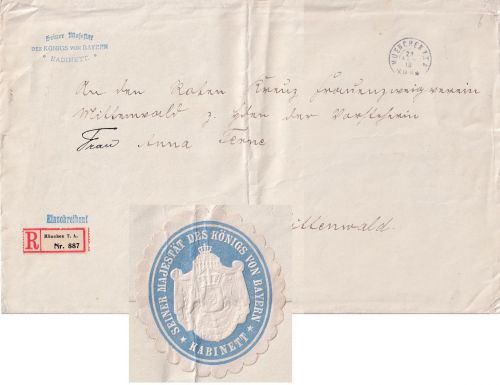 Seiner Majestät
DES KÖNIGS VON BAYERN
KABINETT.
MUENCHEN
An den Roten Kreuz Frauenzweigverein
Mittenwald z. Hden der Vorsteherin
Frau Anna
Einschreiben!
R
München T. A.
Nr. 887
Mittenwald.
SEINER MAJESTÄT DES KÖNIGS VON BAYERN
* KABINETT *